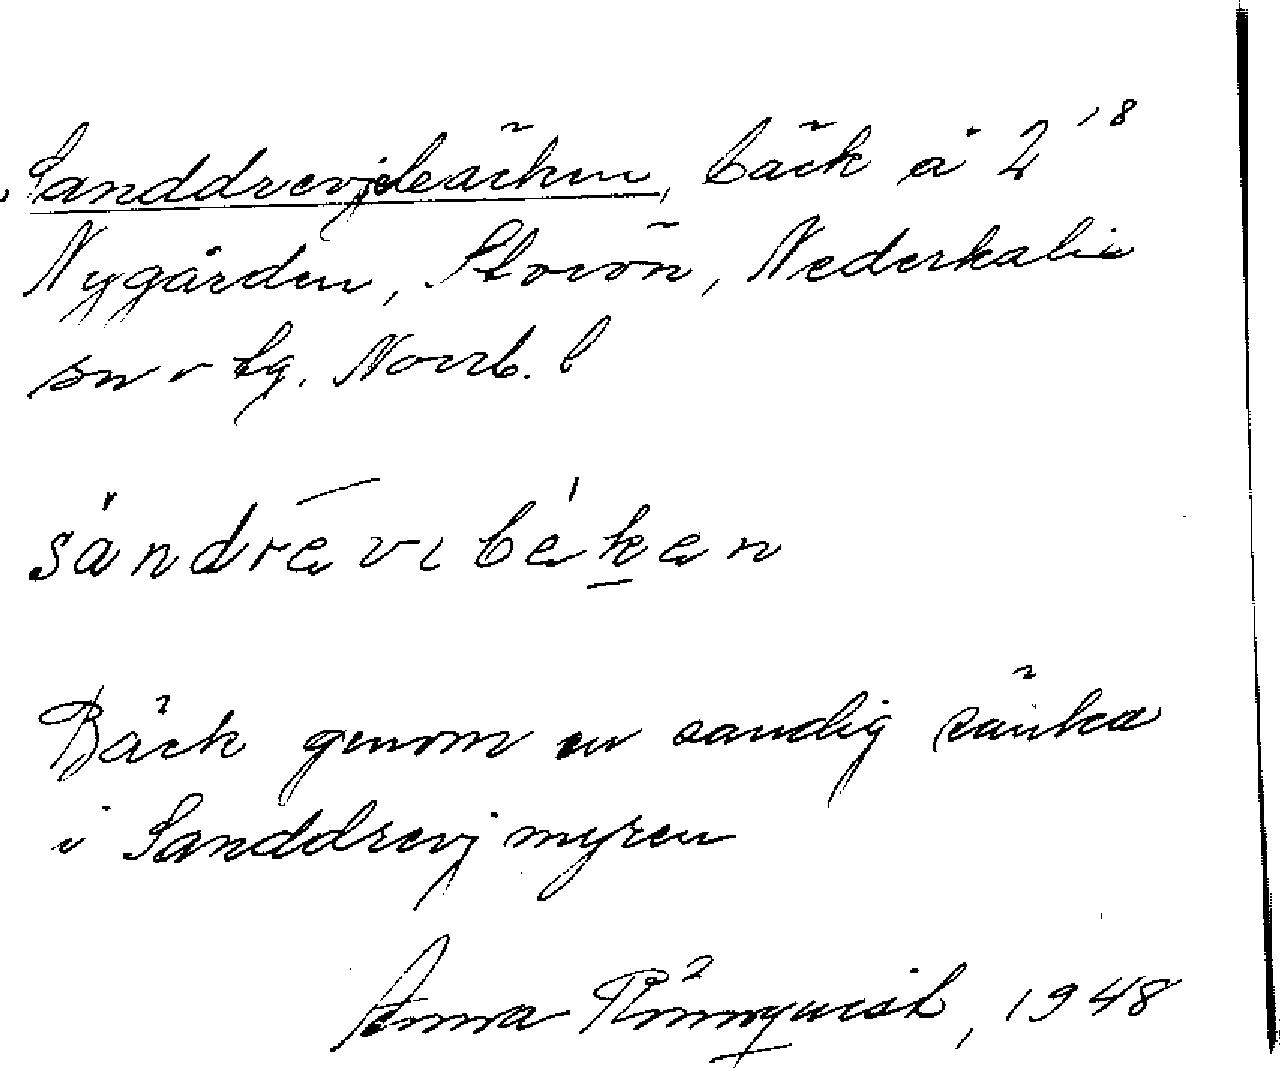 Sanddrevjbäcken, bäck å 2¹⁸
Nygården, Storön, Nederkalix
sn o tg. Norrb. l
sándrevibéken
Bäck genom en sandig sänka
i Sanddrevjmyren
Anna Rönnqvist, 1948